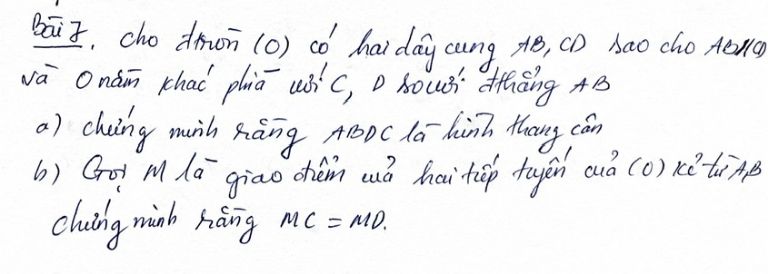 Bài 7. Cho đtròn (O) có hai dây cung AB, CD sao cho AB//CD
và O nằm khác phía với C, D so với đthẳng AB
a) chứng minh rằng ABDC là hình thang cân
b) Gọi M là giao điểm của hai tiếp tuyến của (O) kẻ từ A,B
chứng minh rằng MC = MD.